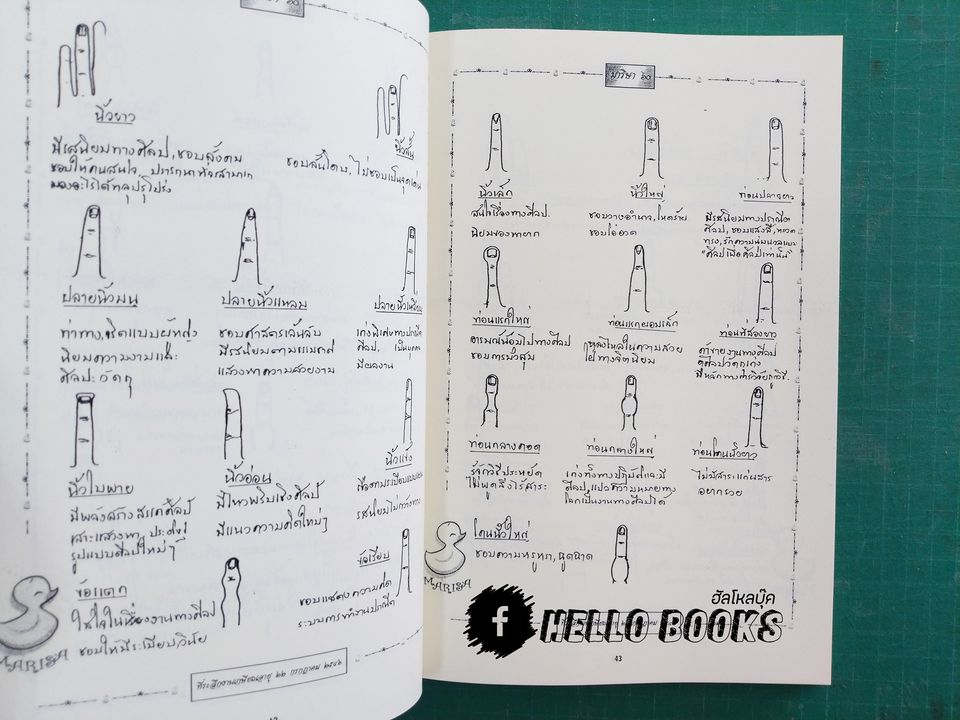 นิ้วยาว
มีรสนิยมทางศิลป, ชอบสังคม
ชอบให้คนสนใจ, ปรารถนาที่จะสามารถ
มองอะไรได้ทะลุปรุโปร่ง
นิ้วสั้น
ชอบสันโดษ, ไม่ชอบเป็นจุดเด่น
ปลายนิ้วมน
นิยมความงามและ
ปลายนิ้วแหลม
ชอบศาสตร์เร้นลับ
แสวงหาความสวยงาม
ศิลป, เป็นบุคคล
มีผลงาน
นิ้วใบพาย
มีพลังสร้างสรรค์ศิลป
รูปแบบศิลปใหม่ๆ
นิ้วอ่อน
มีไหวพริบเชิงศิลป
มีแนวความคิดใหม่ๆ
นิ้วแข็ง
รสนิยมไม่กว้างขวาง
ข้อแตก
ชอบให้มีระเบียบวินัย
ข้อเรียบ
ชอบแสดงความคิด
MARISA
ที่ระลึกงานเกษียณอายุ ๒๒ กรกฎาคม ๒๕๔๖
มาริษา ๖๐
นิ้วเล็ก
สนใจเรื่องทางศิลป.
นิยมของหายาก
นิ้วใหญ่
ชอบวางอำนาจ, โหดร้าย
ชอบโอ้อวด
ท่อนปลายยาว
มีรสนิยมทางประณีต
ศิลป, ชอบแสงสี, ทรวด
ทรง, รักความนุ่มนวลแบบ
"ศิลปเพื่อศิลปเท่านั้น"
ท่อนแรกใหญ่
อารมณ์น้อมไปทางศิลป
ท่อนแรกผอมเล็ก
หลงใหลในความสวย
ใฝ่ทางจิตนิยม
ท่อนที่สองยาว
ค้าขายงานทางศิลป
ท่อนกลางคอด
รู้จักวิธีประหยัด
ไม่พูดสิ่งไร้สาระ
ท่อนกลางใหญ่
ศิลป, แปลความหมายทาง
โลกเป็นงานทางศิลปได้
ท่อนโคนนิ้วยาว
ไม่มีสาระแก่นสาร
อยากรวย
โคนนิ้วใหญ่
ชอบความหรูหรา, ฉูดฉาด
MARISA
ฮัลโหลบุ๊ค
f HELLO BOOKS
43